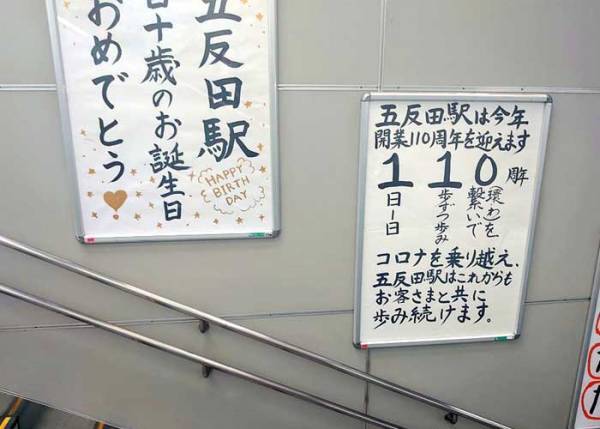 五反田駅
百十歳のお誕生日
おめでとう
HAPPY
BIRTH
DAY
五反田駅は今年
開業110周年を迎えます
110周年
日一日
歩ずつ歩み
(環わ)を
繋いで
コロナを乗り越え、
五反田駅はこれからも
お客さまと共に
歩み続けます。